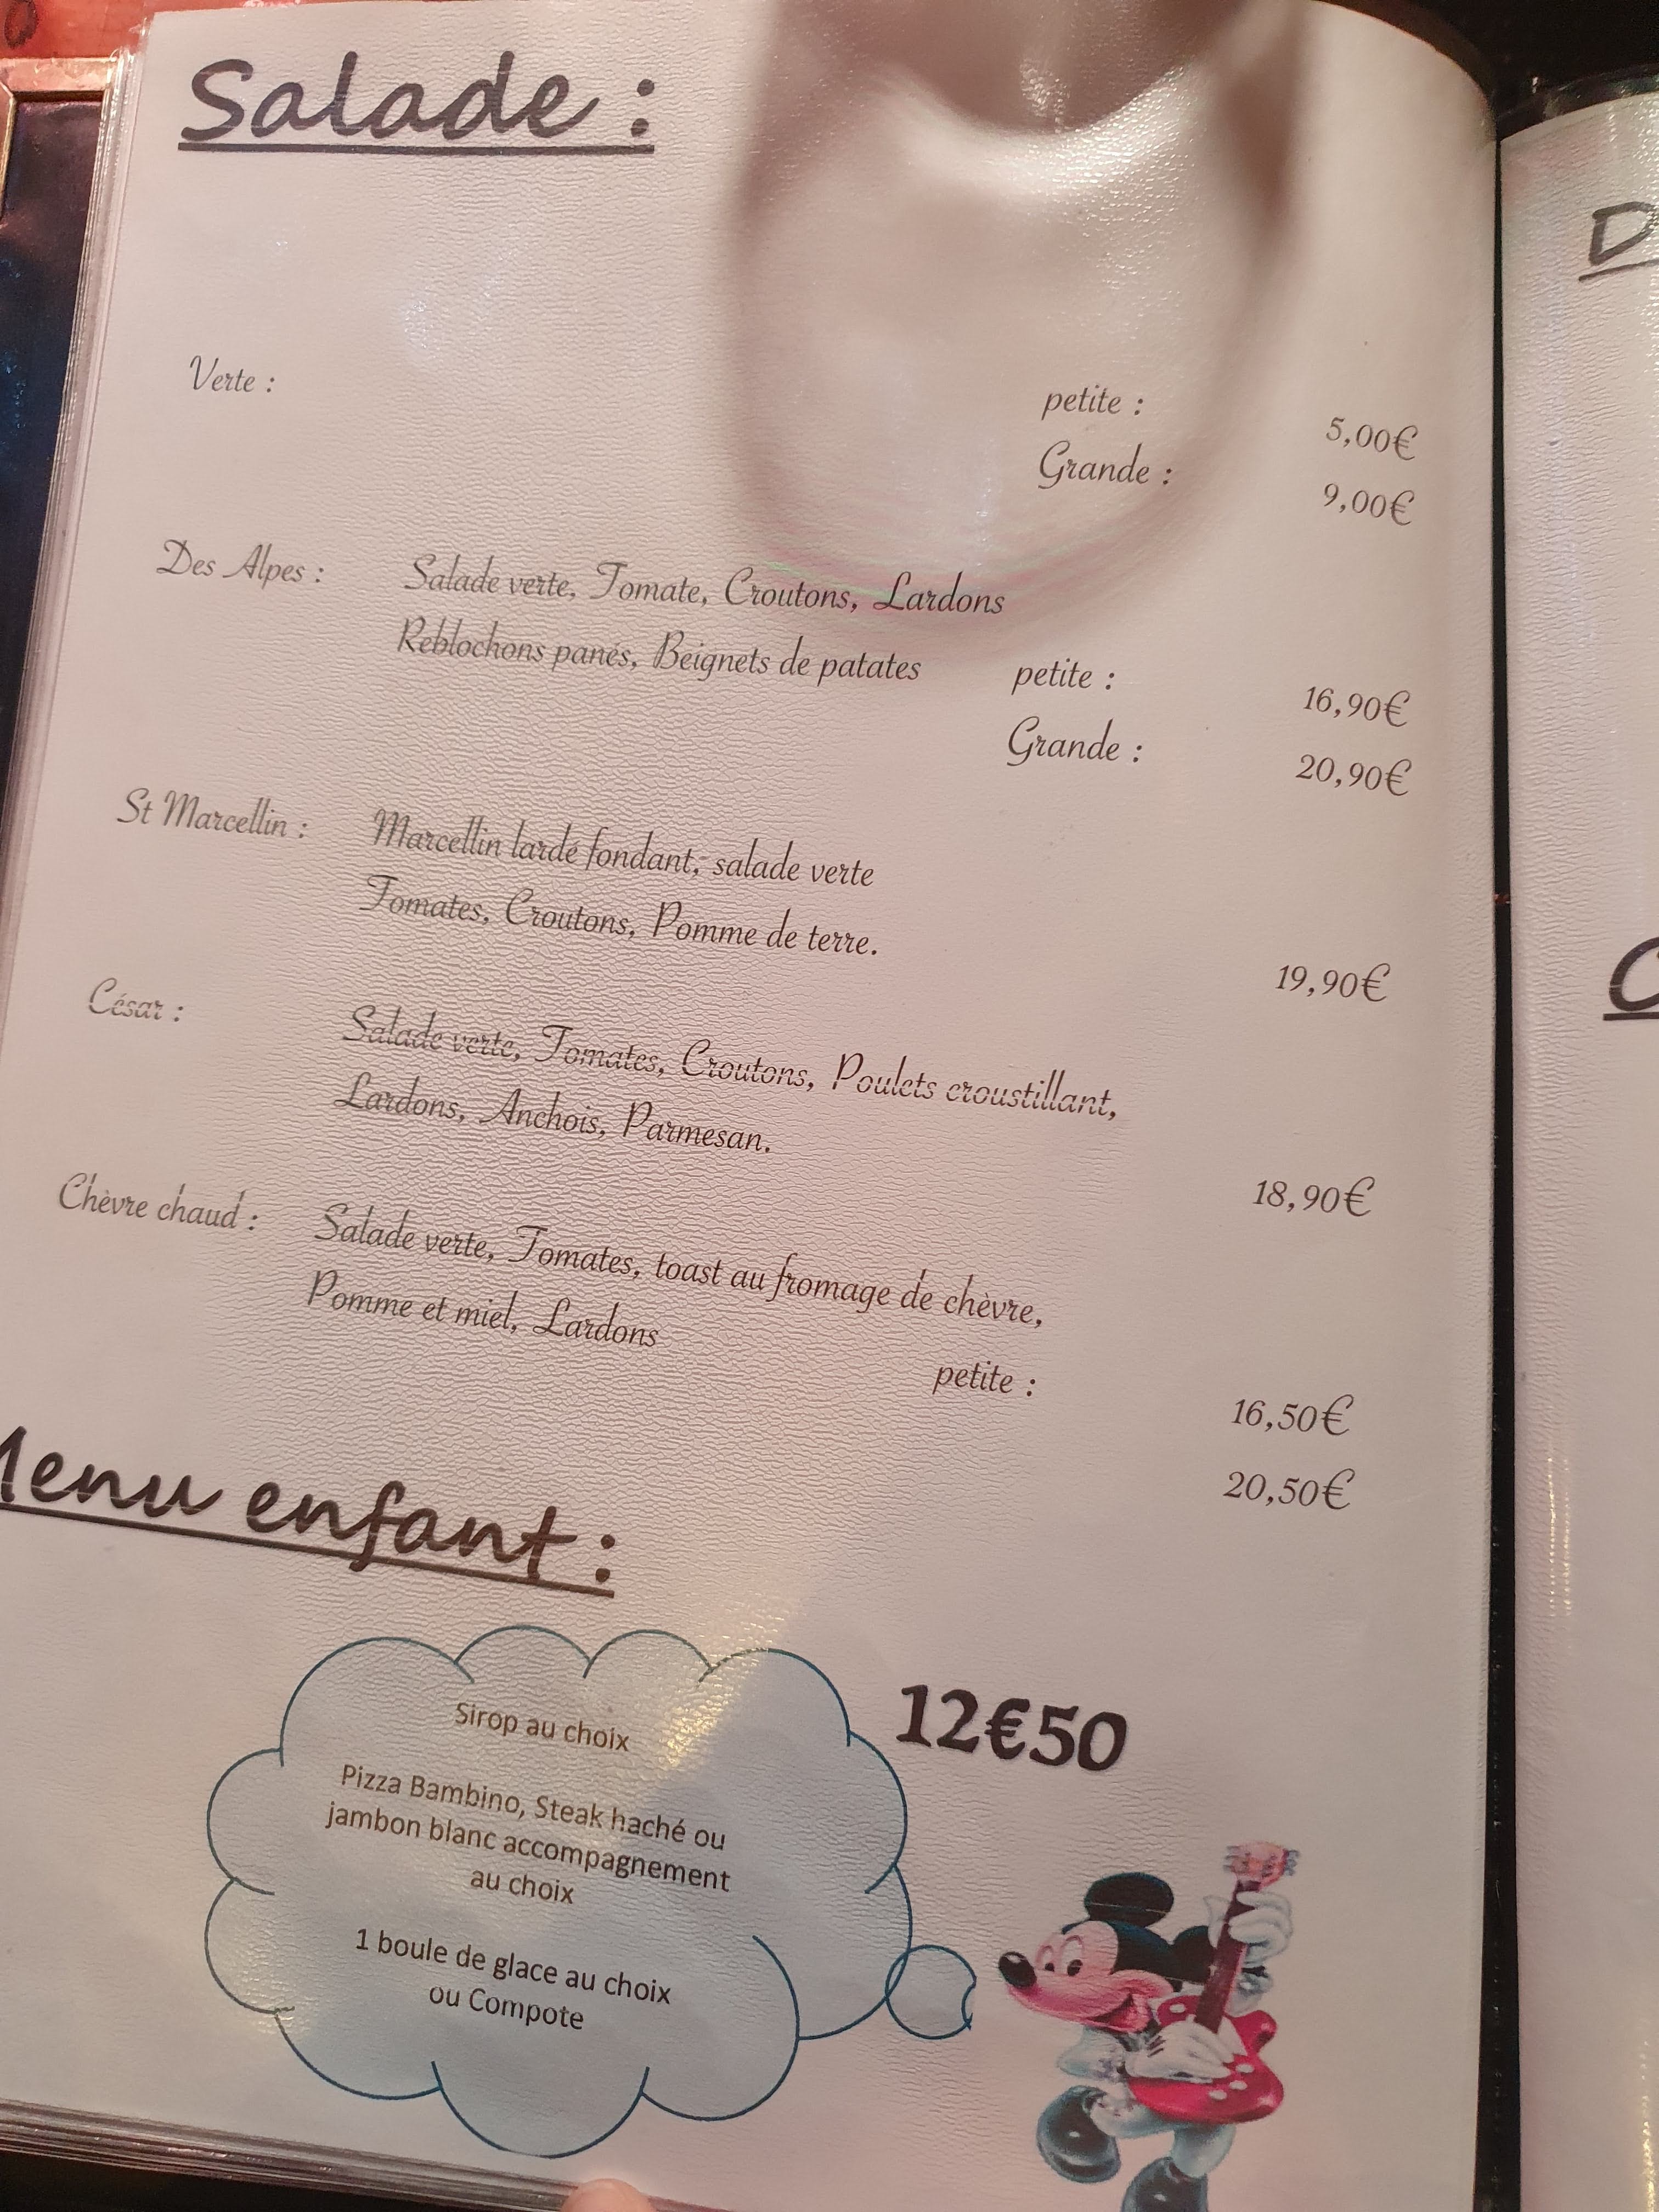 Salade :
Verte :
petite : 5,00€
Grande : 9,00€
Des Alpes : Salade verte, Tomate, Croutons, Lardons
Reblochons panés, Beignets de patates petite : 16,90€
Grande : 20,90€
St Marcellin : Marcellin lardé fondant, salade verte
Tomates, Croutons, Pomme de terre.
19,90€
César : Salade verte, Tomates, Croutons, Poulets croustillant,
Lardons, Anchois, Parmesan.
18,90€
Chèvre chaud : Salade verte, Tomates, toast au fromage de chèvre,
Pomme et miel, Lardons
petite : 16,50€
20,50€
Menu enfant :
12€50
Sirop au choix
Pizza Bambino, Steak haché ou
jambon blanc accompagnement
au choix
1 boule de glace au choix
ou Compote